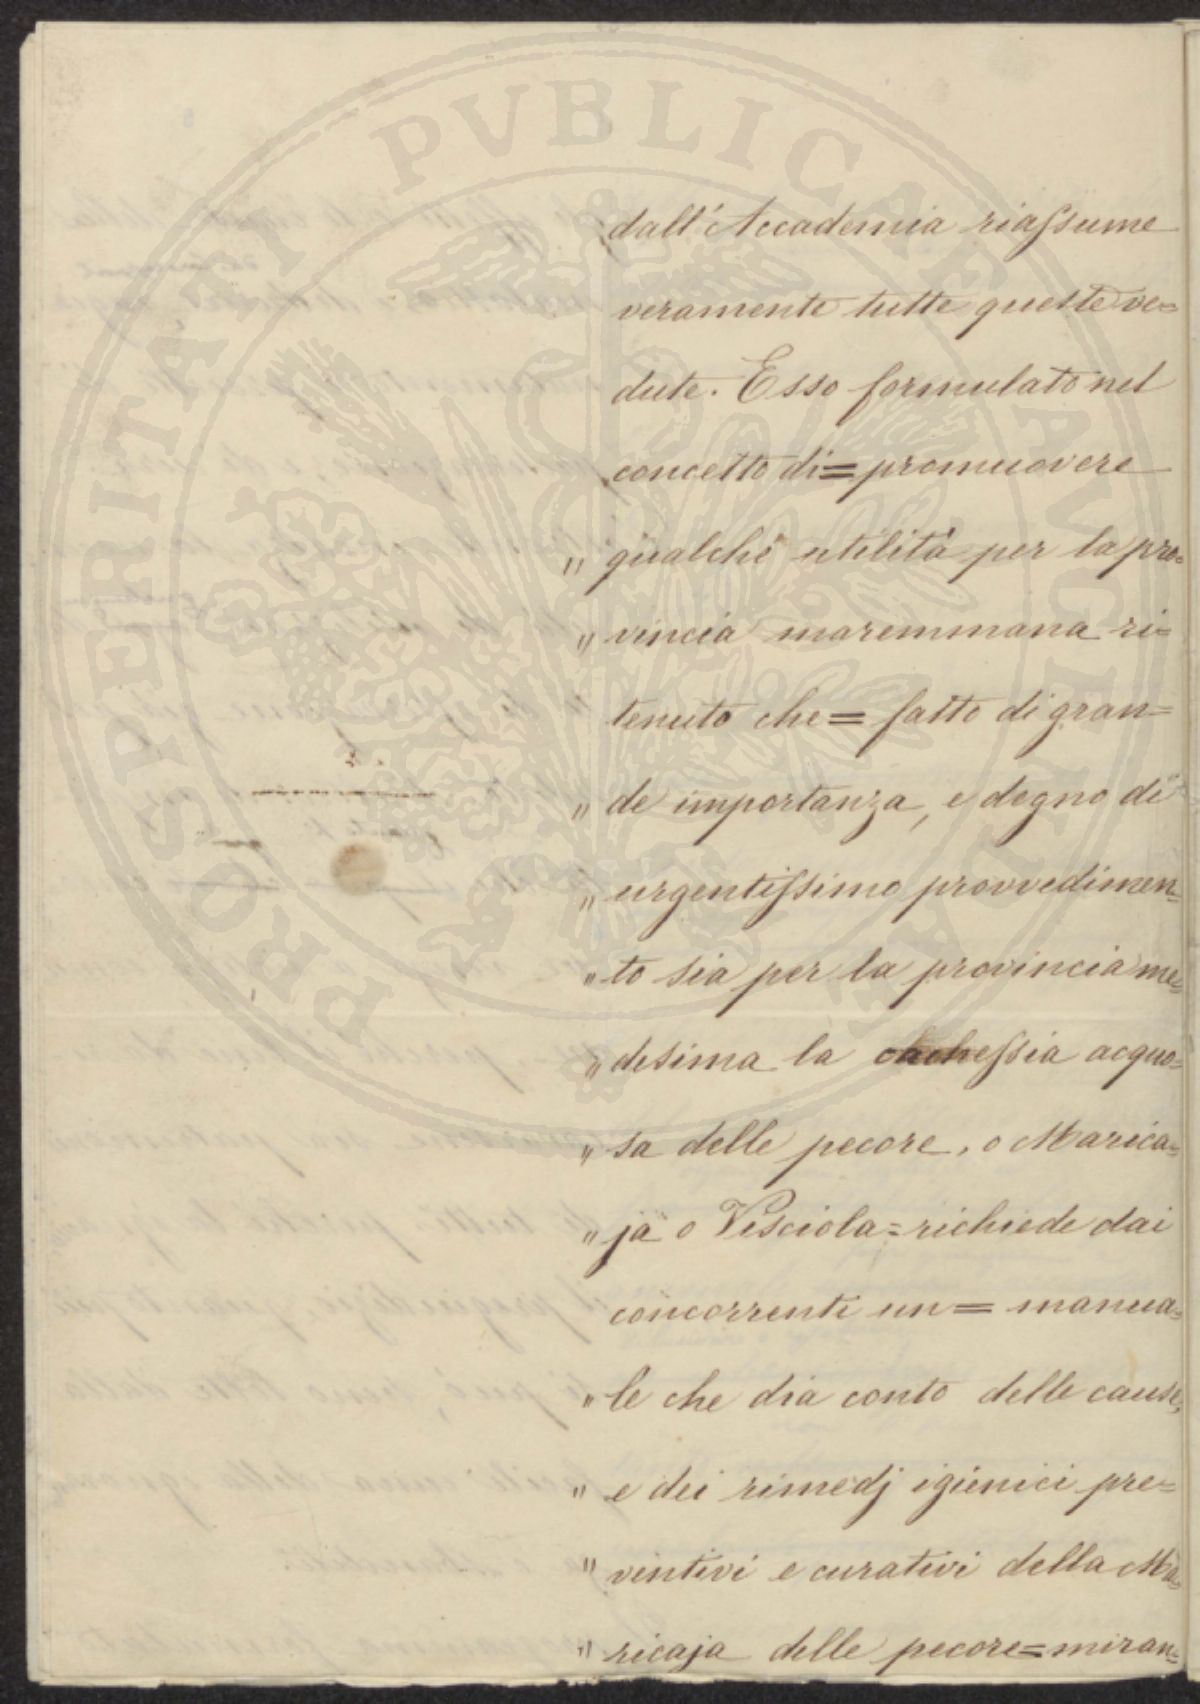 PROSPERITATI PVBLICAE AVGENDAE
dall'Accademia riassume
veramente tutte queste ve=
dute. Esso formulato nel
concetto di= promuovere
" qualche utilità per la pro=
" vincia maremmana ri=
tenuto che= fatto di gran=
" de importanza, e degno di
" urgentissimo provvedimen=
" to sia per la provincia me=
" desima la cachessia acquo=
" sa delle pecore, o Marica=
" ja o Visciola= richiede dai
concorrenti un= manua=
" le che dia conto delle cause,
" e dei rimedj igienici pre=
" ventivi e curativi della Ma=
" ricaja delle pecore= miran=